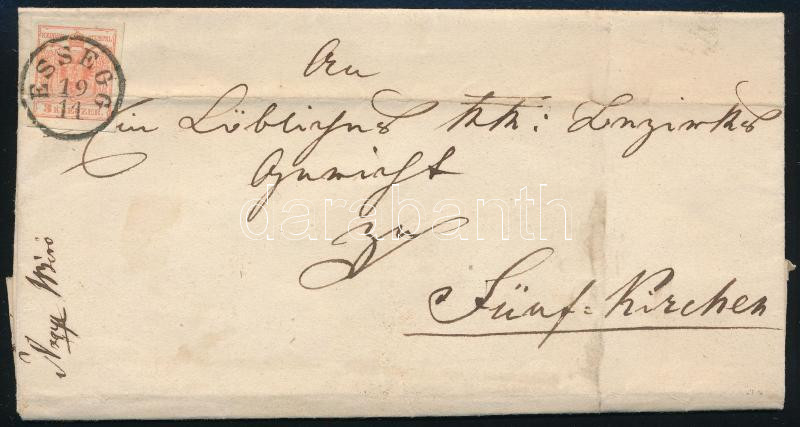 ESSEGG
19
11
3 KREUZER
An
Ein Löbliches kk: Bezirks
Gericht
zu
Fünf=Kirchen
Nagy Biró
darabanth